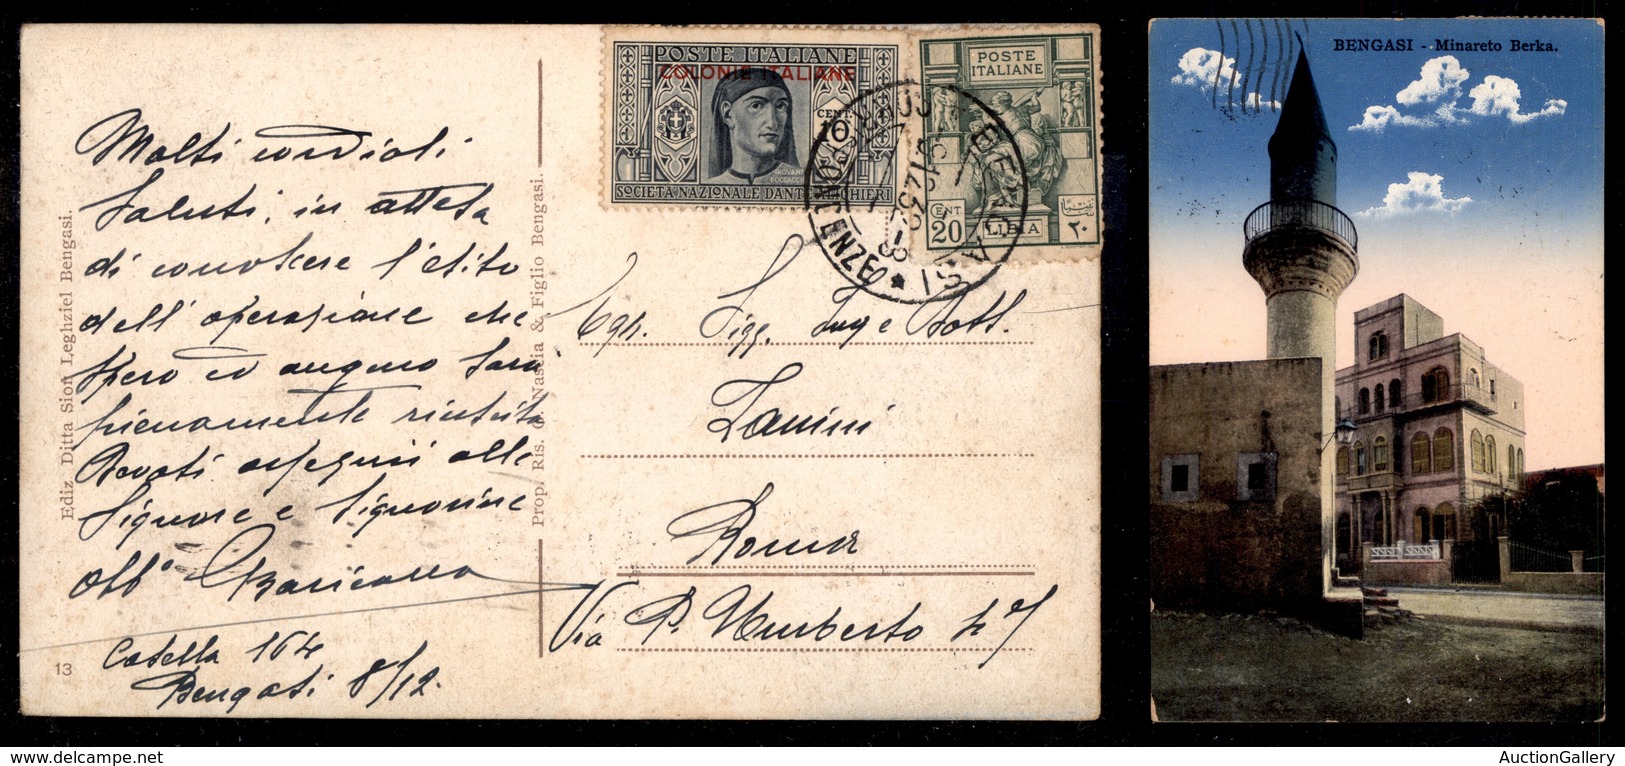 Molti cordiali
Saluti, in attesa
di conoscere l'esito
dell'operazione che
spero ed auguro sarà
pienamente riuscita
Devoti ossequi alle
Signore e Signorine
Obb°
Casella 164
Bengasi 8/12.
13
Ediz. Ditta Sion Leghziel Bengasi.
Prop. Ris. Nascia & Figlio Bengasi.
POSTE ITALIANE
COLONIE ITALIANE
CENT. 10
GIOVANNI BOCCACCIO
SOCIETÀ NAZIONALE DANTE ALIGHIERI
POSTE
ITALIANE
CENT 20
LIBIA
٢٠
BENGASI
Egr. Sigg. Ing e Dott.
Zanini
Roma
Via P. Umberto 47
BENGASI - Minareto Berka.
AuctionGallery